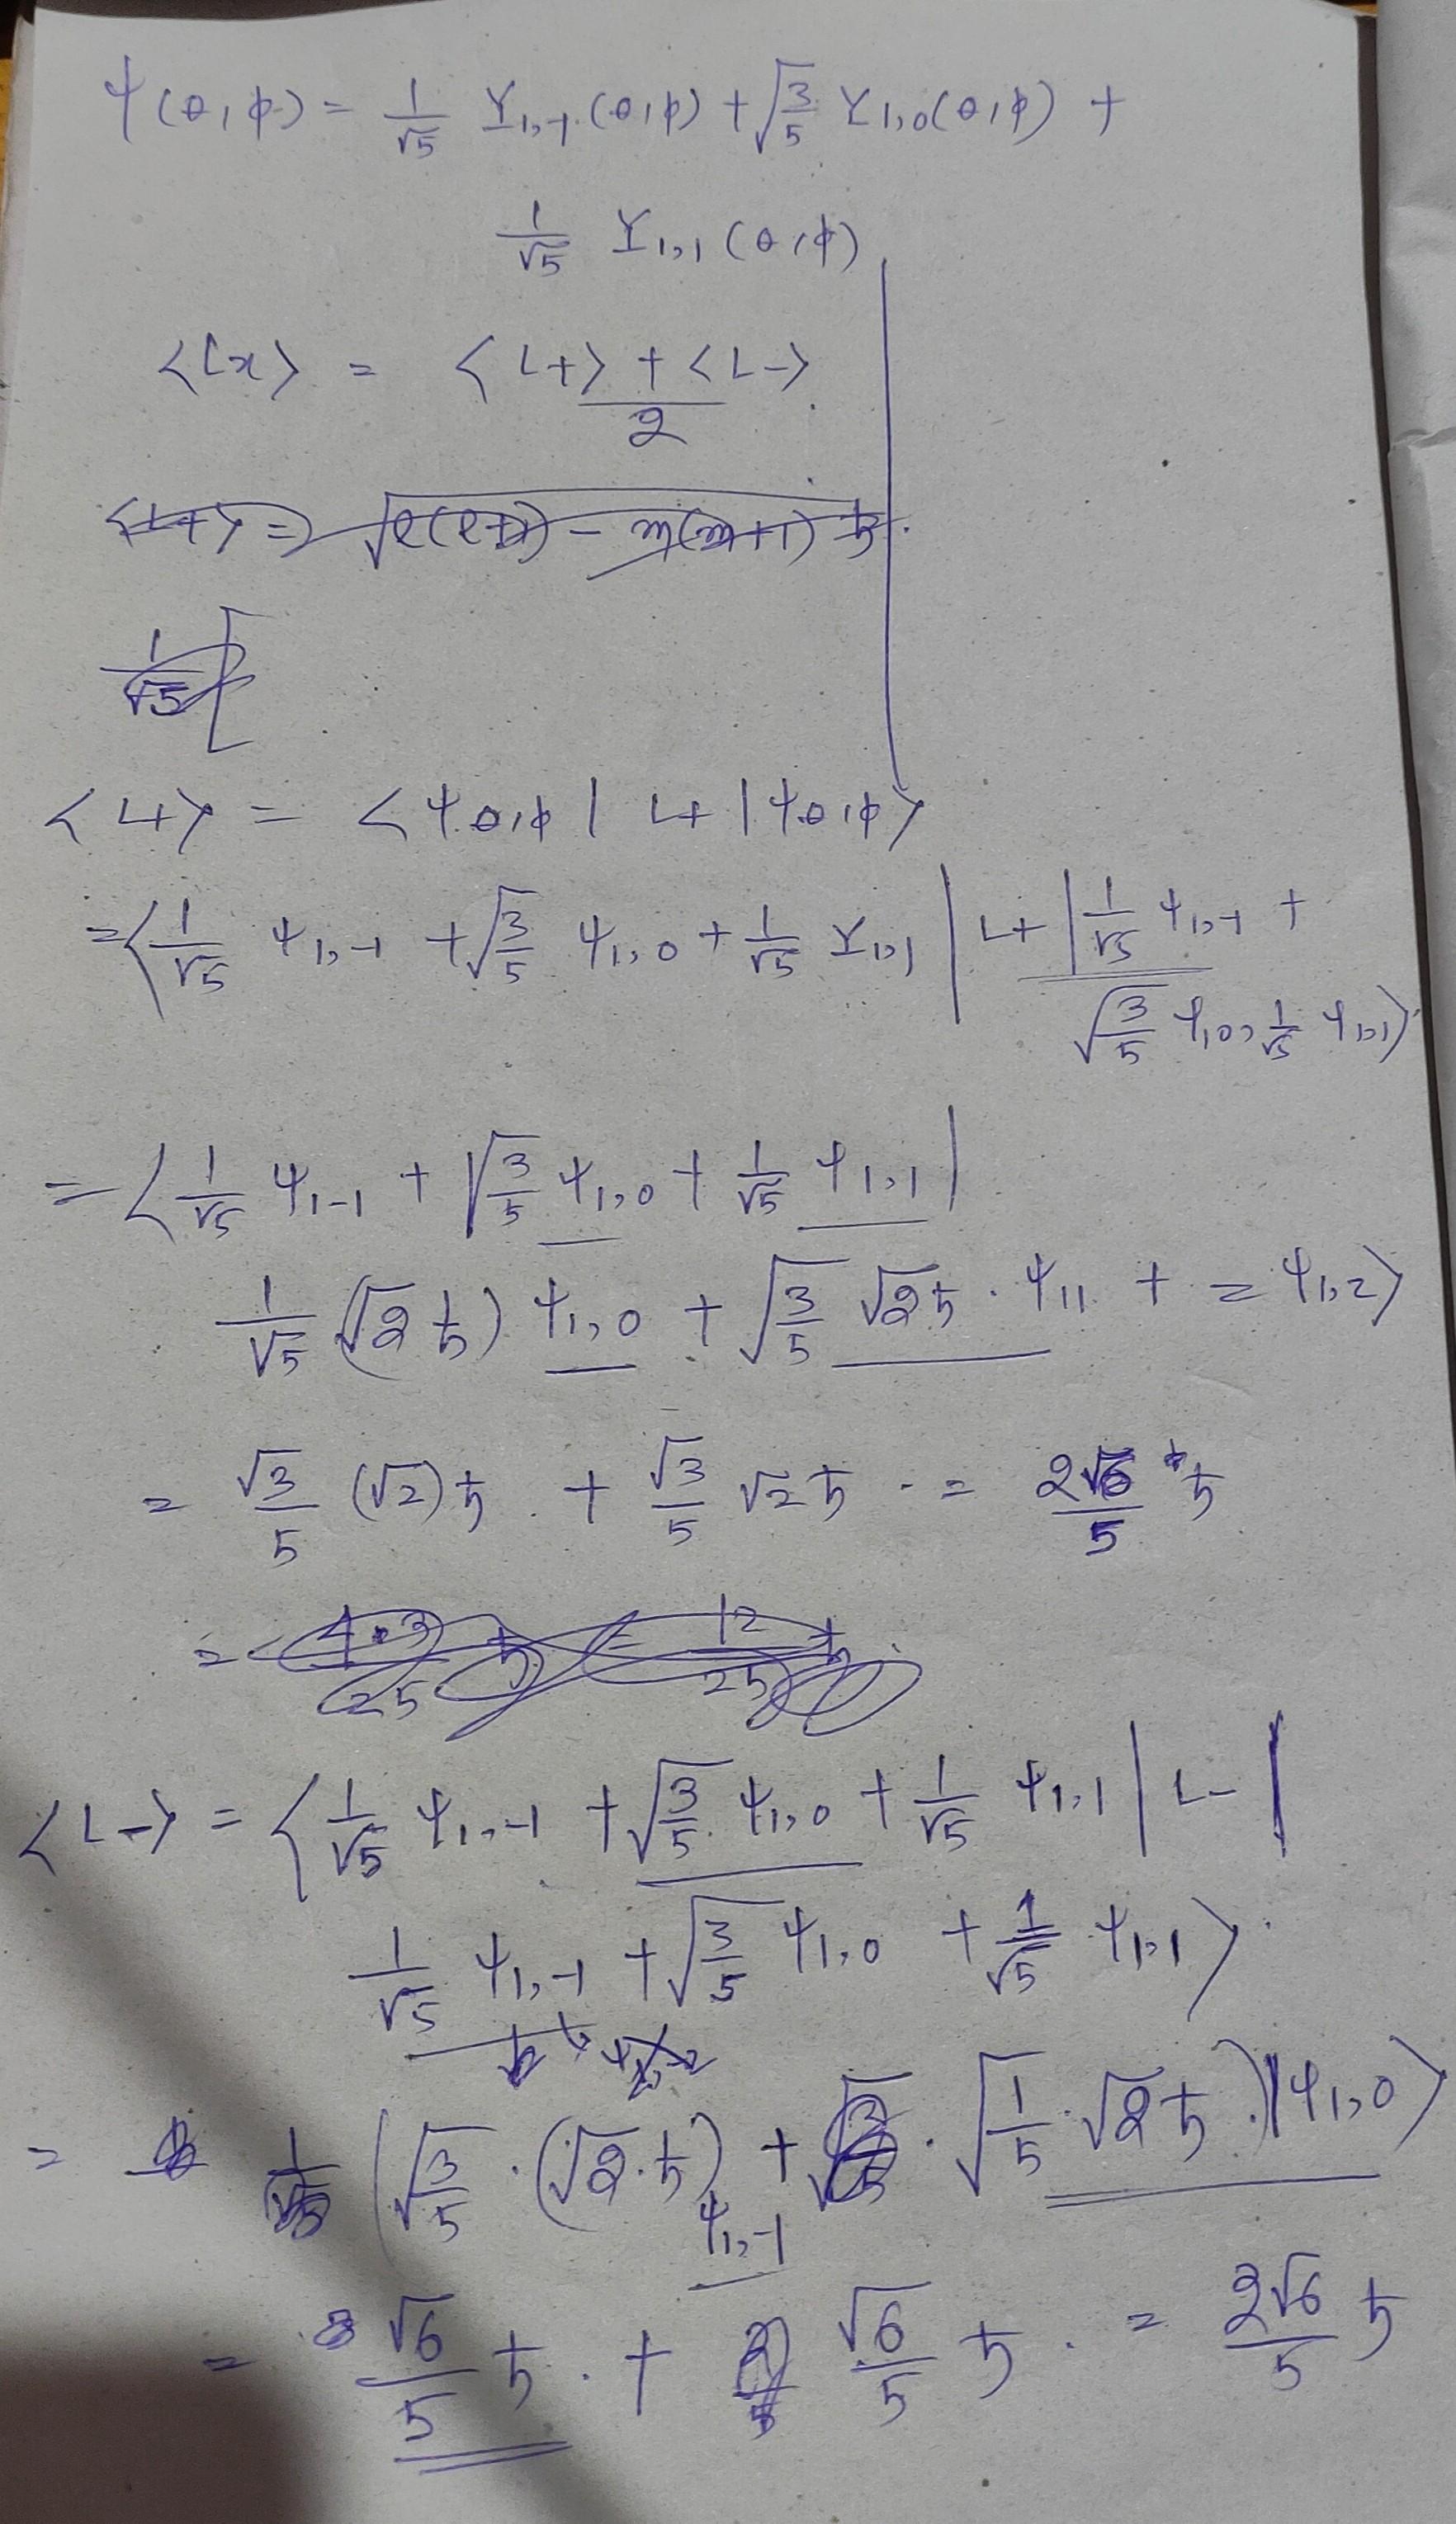 ψ(θ,φ) = 1/√5 Y1,-1 (θ,φ) + √3/5 Y1,0 (θ,φ) +
1/√5 Y1,1 (θ,φ)
<Lx> = <L+> + <L->/2
<L+> = √l(l+1) - m(m+1) ħ
1/√5 [
<L+> = <ψθ,φ | L+ | ψθ,φ>
= <1/√5 ψ1,-1 + √3/5 ψ1,0 + 1/√5 Y1,1 | L+ | 1/√5 ψ1,-1 +
√3/5 ψ1,0, 1/√5 ψ1,1>
= <1/√5 ψ1-1 + √3/5 ψ1,0 + 1/√5 ψ1,1 |
1/√5 (√2 ħ) ψ1,0 + √3/5 √2 ħ . ψ11 + = ψ1,2>
= √3/5 (√2) ħ . + √3/5 √2 ħ . = 2√6/5 ħ
= 4.3/25 ħ = 12/25 ħ
<L-> = <1/√5 ψ1,-1 + √3/5 ψ1,0 + 1/√5 ψ1,1 | L- |
1/√5 ψ1,-1 + √3/5 ψ1,0 + 1/√5 ψ1,1>
= 1/√5 (√3/5 . (√2 . ħ) + . √1/5 . √2 ħ .)|ψ1,0>
ψ1,-1
= √6/5 ħ . + √6/5 ħ . = 2√6/5 ħ